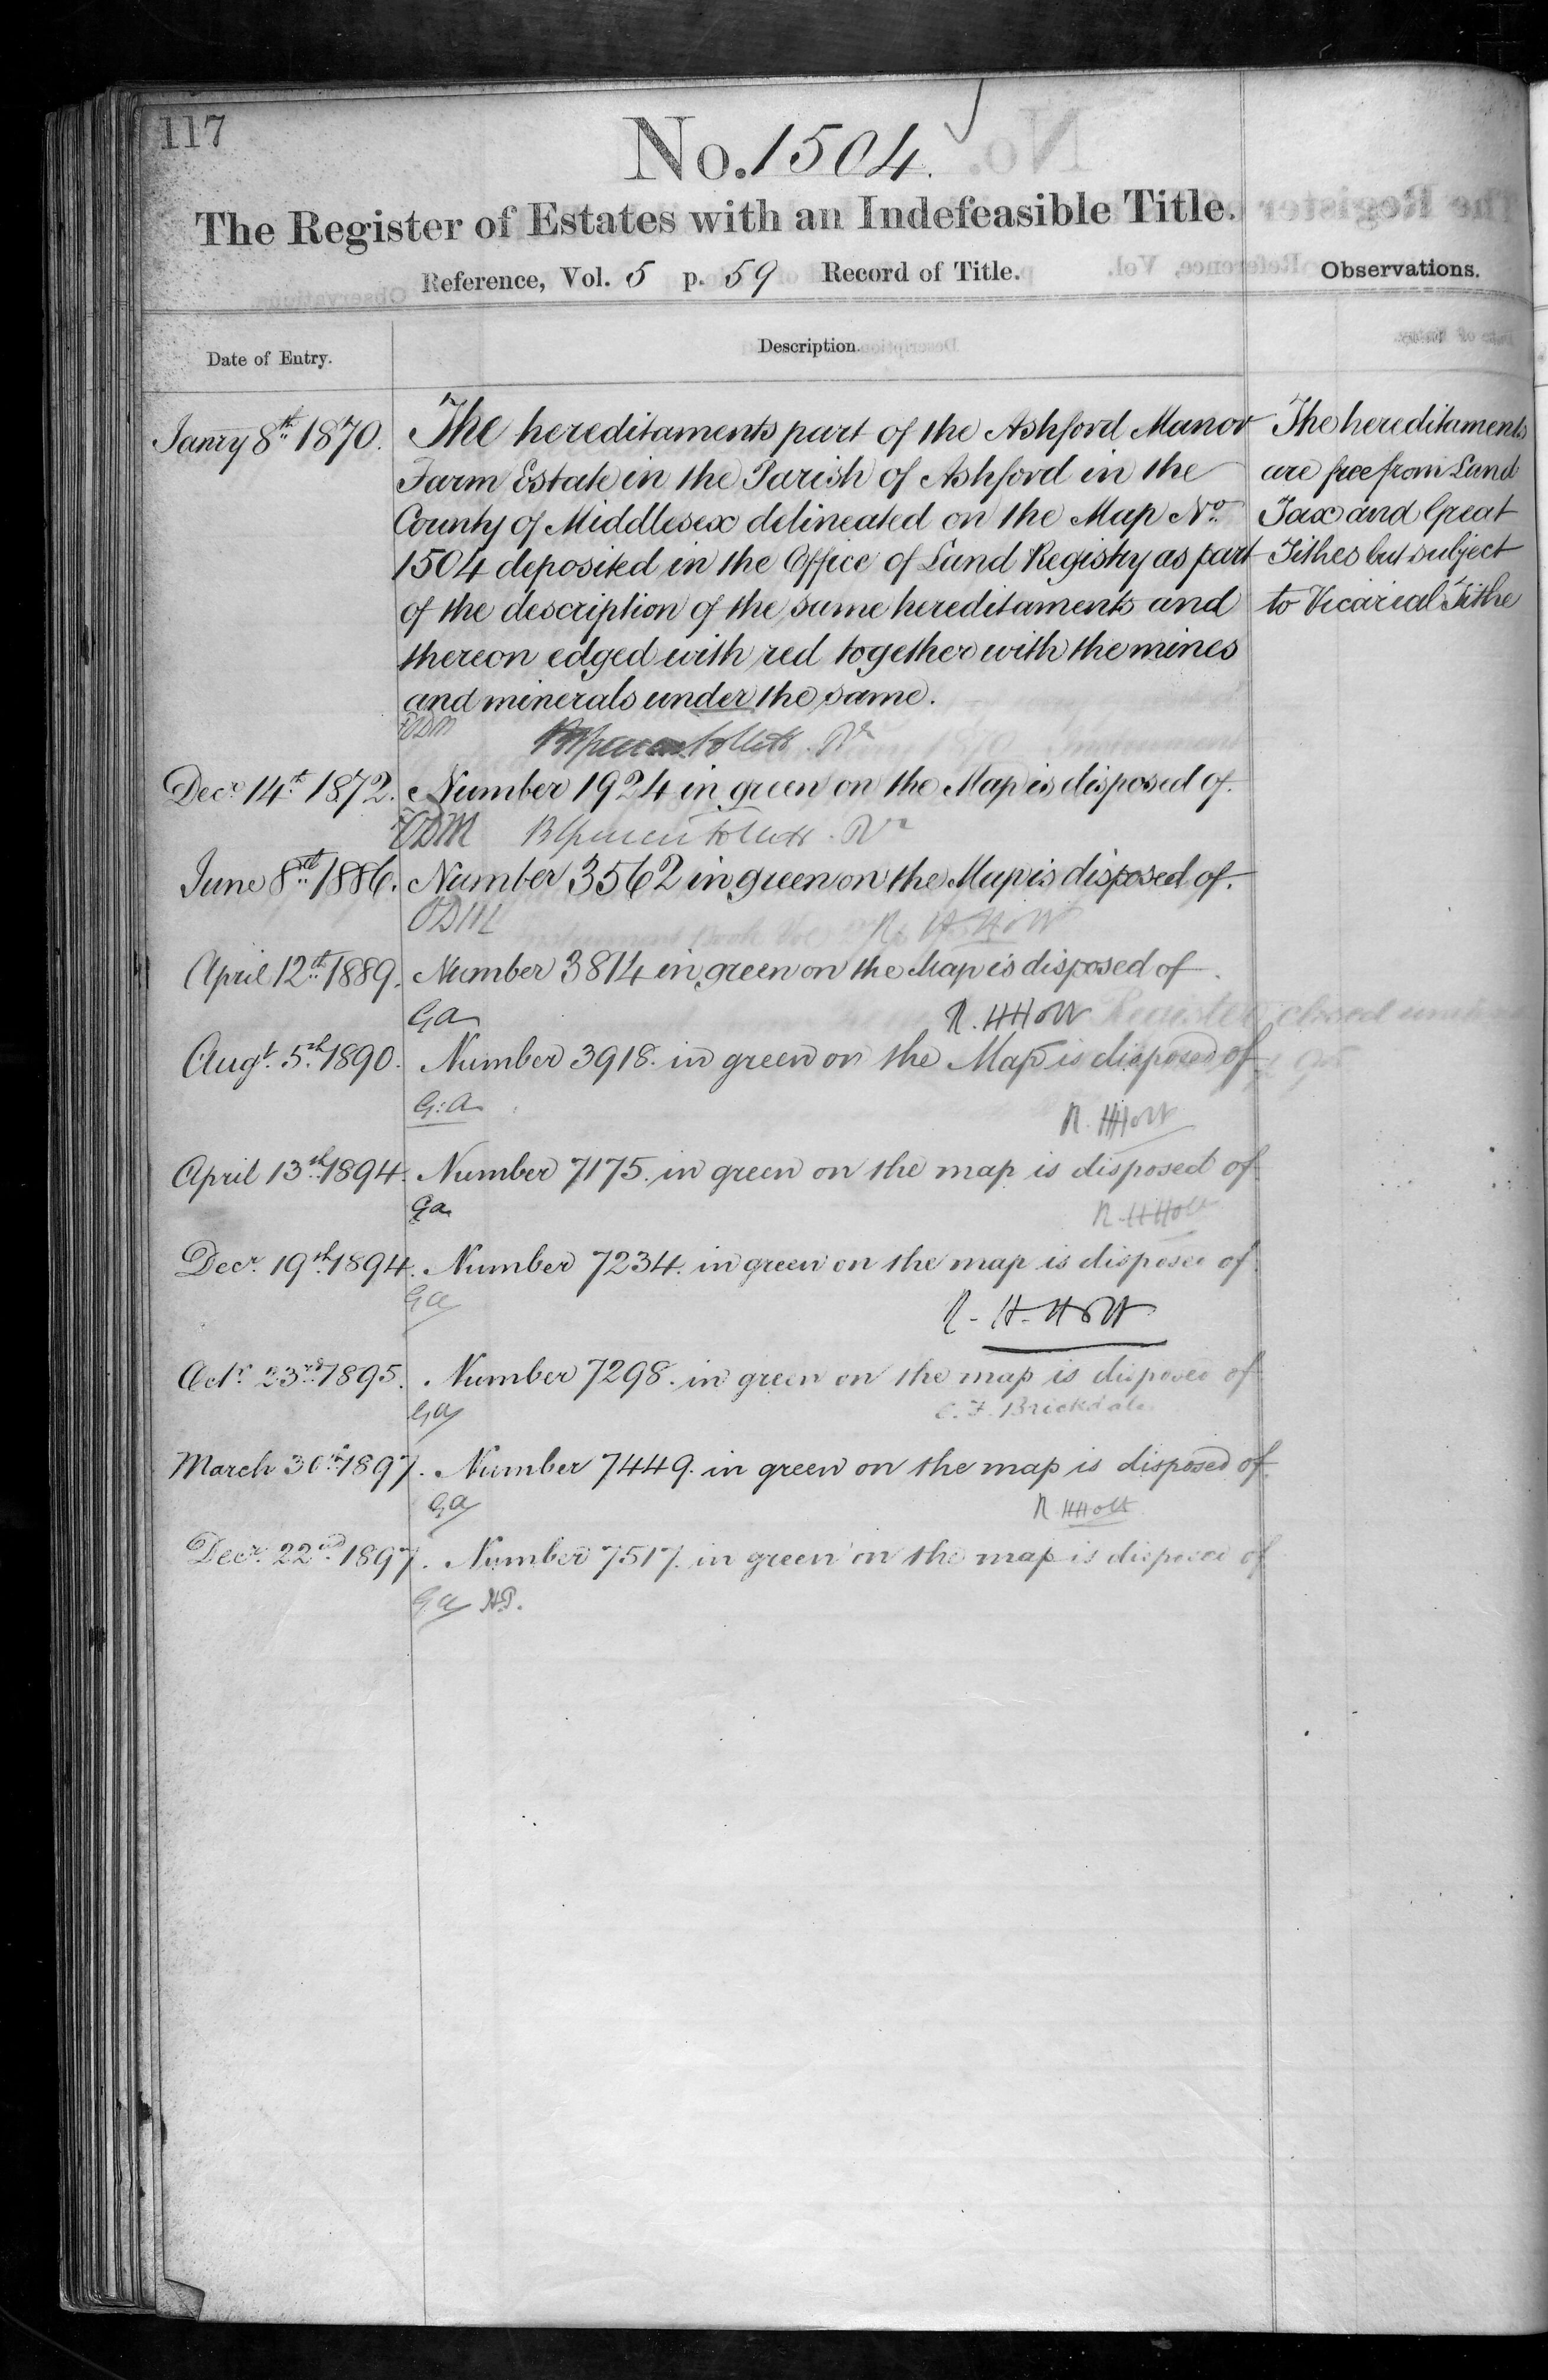 117
No. 1504.
The Register of Estates with an Indefeasible Title.
Reference, Vol. 5 p. 59 Record of Title.
Observations.
Date of Entry.
Description.
Janry 8th 1870. The hereditaments part of the Ashford Manor
Farm Estate in the Parish of Ashford in the
County of Middlesex delineated on the Map No.
1504 deposited in the Office of Land Registry as part
of the description of the same hereditaments and
thereon edged with red together with the mines
and minerals under the same.
The hereditaments
are free from Land
Tax and Great
Tithes but subject
to Vicarial Tithe
Decr 14th 1872. Number 1924 in green on the Map is disposed of.
June 8th 1886. Number 3562 in green on the Map is disposed of.
R. H. Holt
April 12th 1889. Number 3814 in green on the Map is disposed of.
Ga
R. H Holt
Augt. 5th 1890. Number 3918. in green on the Map is disposed of
G: A.
R. H Holt
April 13th 1894. Number 7175. in green on the map is disposed of
Ga
R. H Holt
Decr. 19th 1894. Number 7234. in green on the map is disposed of
Ga
R. H. Holt
Octr. 23rd 1895. Number 7298. in green on the map is disposed of
Ga
C. F. Brickdale
March 30th 1897. Number 7449. in green on the map is disposed of
Ga
R. H Holt
Decr. 22nd 1897. Number 7517. in green on the map is disposed of
Ga H.P.